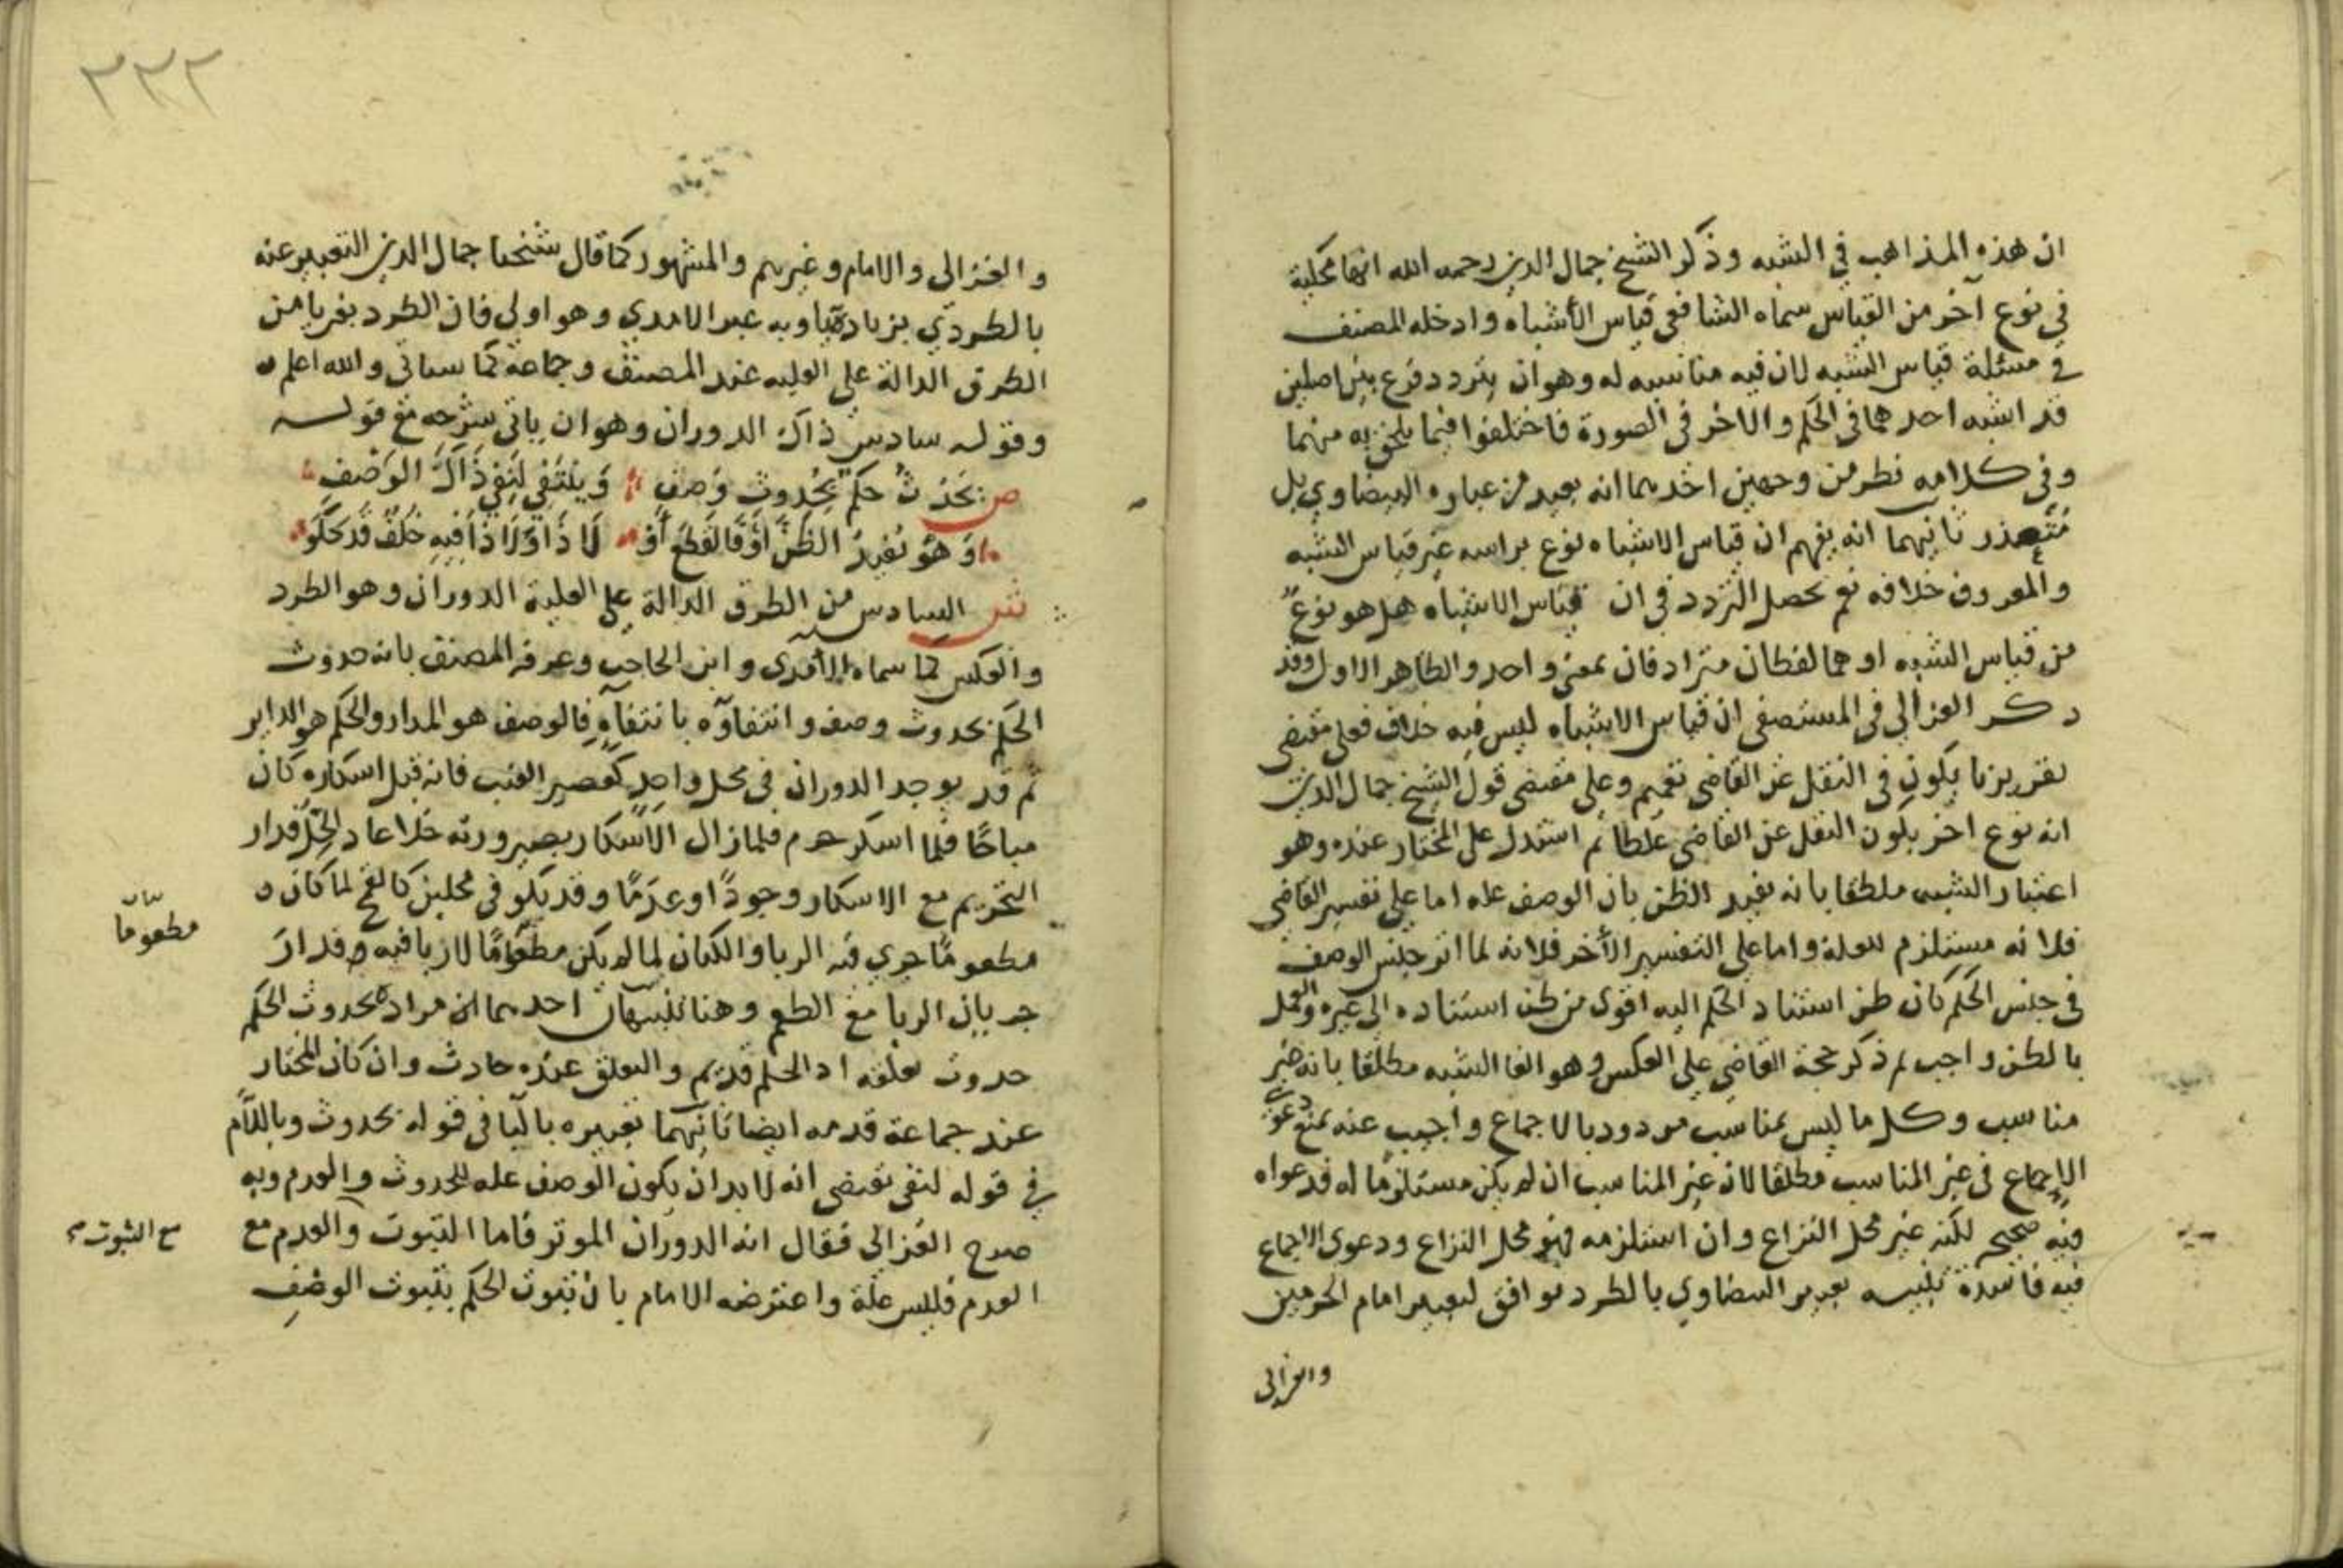 ان هذه المذاهب في الشبه وذكر الشيخ جمال الدين رحمه الله انها محكية
في نوع آخر من القياس سماه الشافعي قياس الأشباه وادخله المصنف
في مسئلة قياس الشبه لان فيه مناسبه له وهو ان يتردد فرع بين اصلين
قد اشبه احدهما في الحكم والاخر في الصورة فاختلفوا فيما يلحق به منهما
وفي كلامه نظر من وجهين احدهما انه بعيد من عباره البيضاوي بل
متعذر ثانيهما انه يفهم ان قياس الاشباه نوع براسه غير قياس الشبه
والمعروف خلافه نعم يحصل التردد في ان قياس الاشباه هل هو نوعٌ
من قياس الشبه او هما لفظان مترادفان بمعنى واحد والظاهر الاول وقد
ذكر الغزالي في المستصفى ان قياس الاشباه ليس فيه خلاف فعلى مقتضى
تقريرنا يكون في النقل عن القاضي تعميم وعلى مقتضى قول الشيخ جمال الدين
انه نوع اخر يكون النقل عن القاضي غلطا ثم استدل على المختار عنده وهو
اعتبار الشبه مطلقا بانه يفيد الظن بان الوصف عله اما على تفسير القاضي
فلانه مستلزم للعلة واما على التفسير الأخر فلانه لما اثر جنس الوصف
في جنس الحكم كان ظن استناد الحكم اليه اقوى من ظن استناده الى غيره والعمل
بالظن واجب ثم ذكر حجة القاضي على العكس وهو الغا الشبه مطلقا بانه غير
مناسب وكل ما ليس بمناسب مردود بالاجماع واجيب عنه بمنع دعوى
الاجماع في غير المناسب مطلقا لان غير المناسب ان لم يكن مستلزما له فدعواه
فيه صحيح لكنه غير محل النزاع وان استلزمه فهو محل النزاع ودعوى الاجماع
فيه فاسدة تنبيه تعبير البيضاوي بالطرد يوافق لتعبير امام الحرمين
والغزالي
٣٣٢
والغزالي والامام وغيرهم والمشهور كما قال شيخنا جمال الدين التعبير عنه
بالطردي بزيادة يا وبه عبر الامدي وهو اولى فان الطرد بغير يا من
الطرق الدالة على العليه عند المصنف وجماعة كما سياتي والله اعلم
وقوله سادس ذاك الدوران وهو ان ياتي شرحه مع قوله
ص يَحْدُثُ حكم بحُدوث وَصف وَيَنْتَفِي لِنَفْي ذَاكَ الوَصْفِ
وَهُوَ يُفيدُ الظَنَّ أوْ فَالقَطعَ أوْ لَا ذَا وَلَا ذَا فيهِ خُلفٌ قَد حَكَوْا
ش السادس من الطرق الدالة على العلية الدوران وهو الطرد
والعكس كما سماه الآمدي وابن الحاجب وعرفه المصنف بانه حدوث
الحكم بحدوث وصف وانتفاؤه بانتفآءه فالوصف هو المدار والحكم هو الداير
ثم قد يوجد الدوران في محل واحد كعصير العنب فانه قبل اسكاره كان
مباحًا فلما اسكر حرم فلما زال الاسكار بصيرورته خلا عاد الحِلّ فدار
التحريم مع الاسكار وجودًا وعدَمًا وقد يكون في محلين كالقمح لما كان
مطعومًا جري فيه الربا والكتان لما لم يكن مطعومًا لا ربا فيه فدارَ
مطعوما
جريان الربا مع الطعم وهنا تنبيهان احدهما ان مراده بحدوث الحكم
حدوث تعلقه اذ الحكم قديم والتعلق عنده حادث وان كان المختار
عند جماعة قدمه ايضا ثانيهما تعبيره بالبا في قوله بحدوث وباللام
في قوله لنفي تقتضي انه لا بد ان يكون الوصف عله للحدوث والعدم وبه
صرح الغزالي فقال انه الدوران الموثر فاما الثبوت والعدم مع
مع الثبوت
العدم فليس علة واعترضه الامام بان ثبوت الحكم بثبوت الوصف